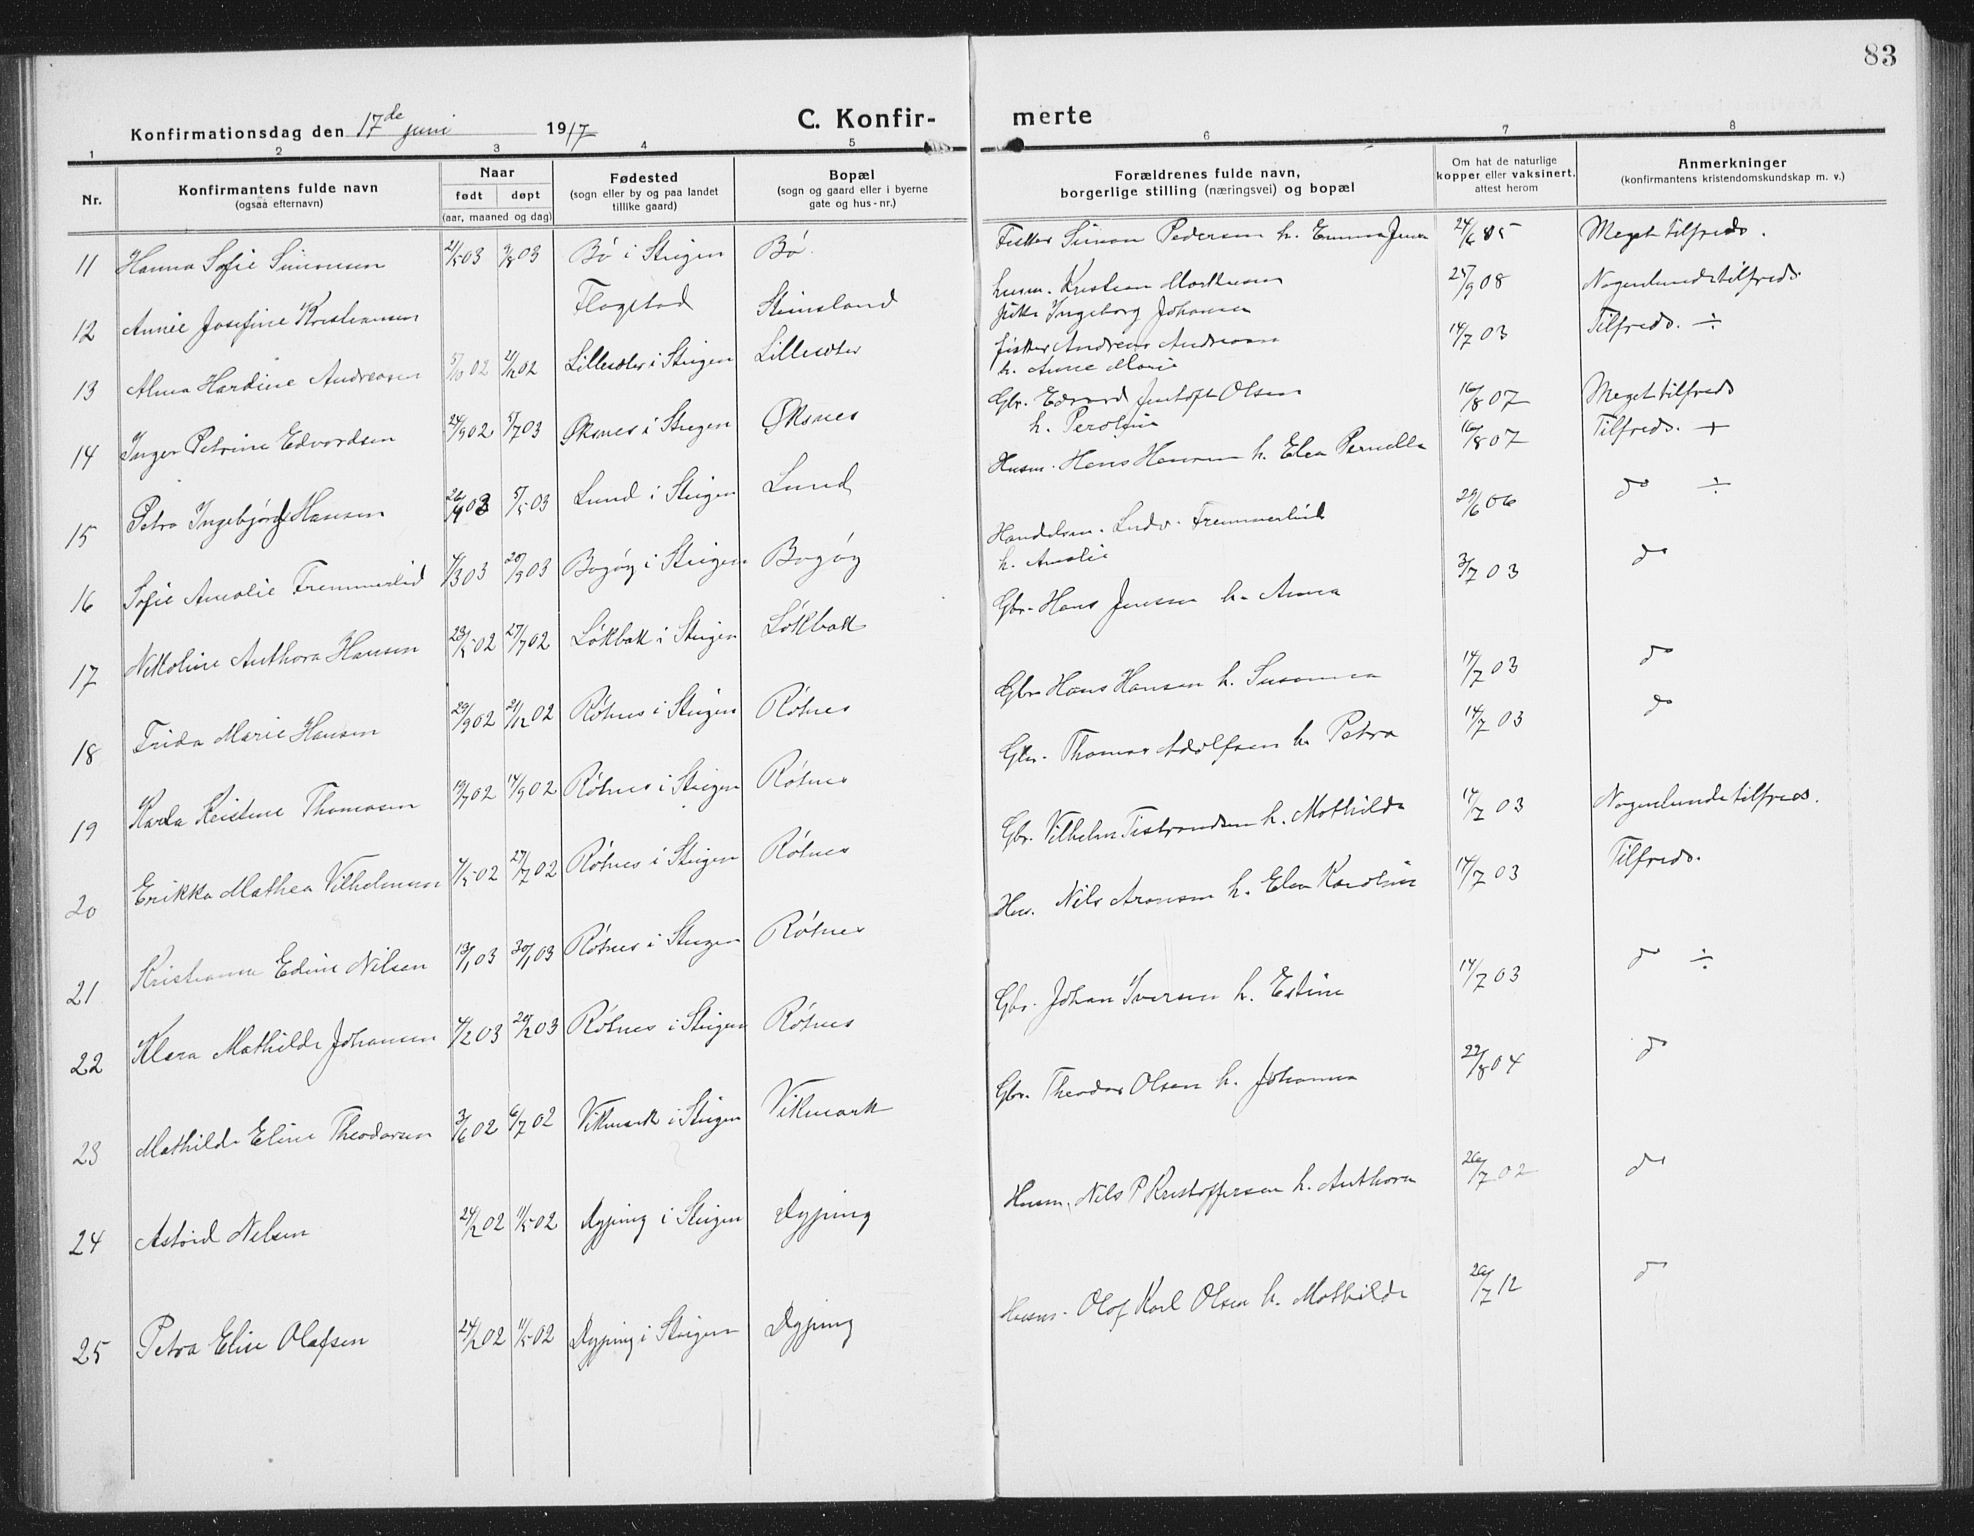 83
Konfirmationsdag den 17de juni 1917
C. Konfir-
merte
1 2 3 4 5 6 7 8
Nr.
Konfirmantens fulde navn
(ogsaa efternavn)
Naar
født døpt
(aar, maaned og dag)
Fødested
(sogn eller by og paa landet
tillike gaard)
Bopæl
(sogn og gaard eller i byerne
gate og hus-nr.)
Forældrenes fulde navn,
borgerlige stilling (næringsvei) og bopæl
Om hat de naturlige
kopper eller vaksinert,
attest herom
Anmerkninger
(konfirmantens kristendomskundskap m. v.)
11 Hanna Sofie Simonsen 21/5 03 9/8 03 Bø i Steigen Bø. Fisker Simon Pedersen h. Emma 24/6 05 Meget tilfreds.
12 Annie Josefine Kristiansen Flagstad Steinsland husm. Kristian Markussen 25/9 08 Nogenlunde tilfreds.
Ingeborg Johansen
13 Alma Hardine Andreasen 5/10 02 21/12 02 Lillesæter i Steigen Lillesæter fisker Andreas Andreasen 14/7 03 Tilfreds. ÷
h. Anne Marie
14 Inger Petrine Edvardsen 24/9 02 5/7 03 Øksnes i Steigen Øksnes Gbr. Edvard Jentoft Olsen 16/8 07 Meget tilfreds
h. Peroline
15 Petra Ingebjørg Hansen 26/9 02 5/5 03 Lund i Steigen Lund Husm. Hans Hansen h. Elen Pernelle 16/8 07 Tilfreds. +
16 Sofie Amalie Fremmerlid 4/3 03 20/9 03 Bogøy i Steigen Bogøy Handelsm. Ludv. Fremmerlid 29/6 06 do ÷
h. Amalie
17 Nikoline Anthora Hansen 23/5 02 27/7 02 Løkbak i Steigen Løkbak Gbr. Hans Jensen h. Anna 3/7 03 do
18 Frida Marie Hansen 29/9 02 21/12 02 Røtnes i Steigen Røtnes Gbr. Hans Hansen h. Susanna 14/7 03 do
19 Karla Kristine Thomasen 19/7 02 14/9 02 Røtnes i Steigen Røtnes Gbr. Thomas Adolfsen h. Petra 14/7 03 do
20 Erikka Mathea Vilhelmsen 4/5 02 27/7 02 Røtnes i Steigen Røtnes Gbr. Vilhelm Tistrandsen h. Mathilde 14/7 03 Nogenlunde tilfreds.
21 Kristianna Edine Nilsen 13/1 03 30/1 03 Røtnes i Steigen Røtnes Hus. Nils Aronsen h. Elen Karoline 14/7 03 Tilfreds.
22 Klara Mathilde Johansen 4/2 03 20/2 03 Røtnes i Steigen Røtnes Gbr. Johan Iversen h. Estine 14/7 03 do ÷
23 Mathilde Eline Theodorsen 3/6 02 6/7 02 Vikmark i Steigen Vikmark Gbr. Theodor Olsen h. Johanna 22/8 04 do
24 Astrid Nelsen 24/2 02 11/5 02 Dyping i Steigen Dyping Husm. Nils P Kristoffersen h. Anthora 26/7 02 do
25 Petra Elise Olafsen 24/2 02 11/5 02 Dyping i Steigen Dyping Husm. Olaf Karl Olsen h. Mathilde 26/7 12 do